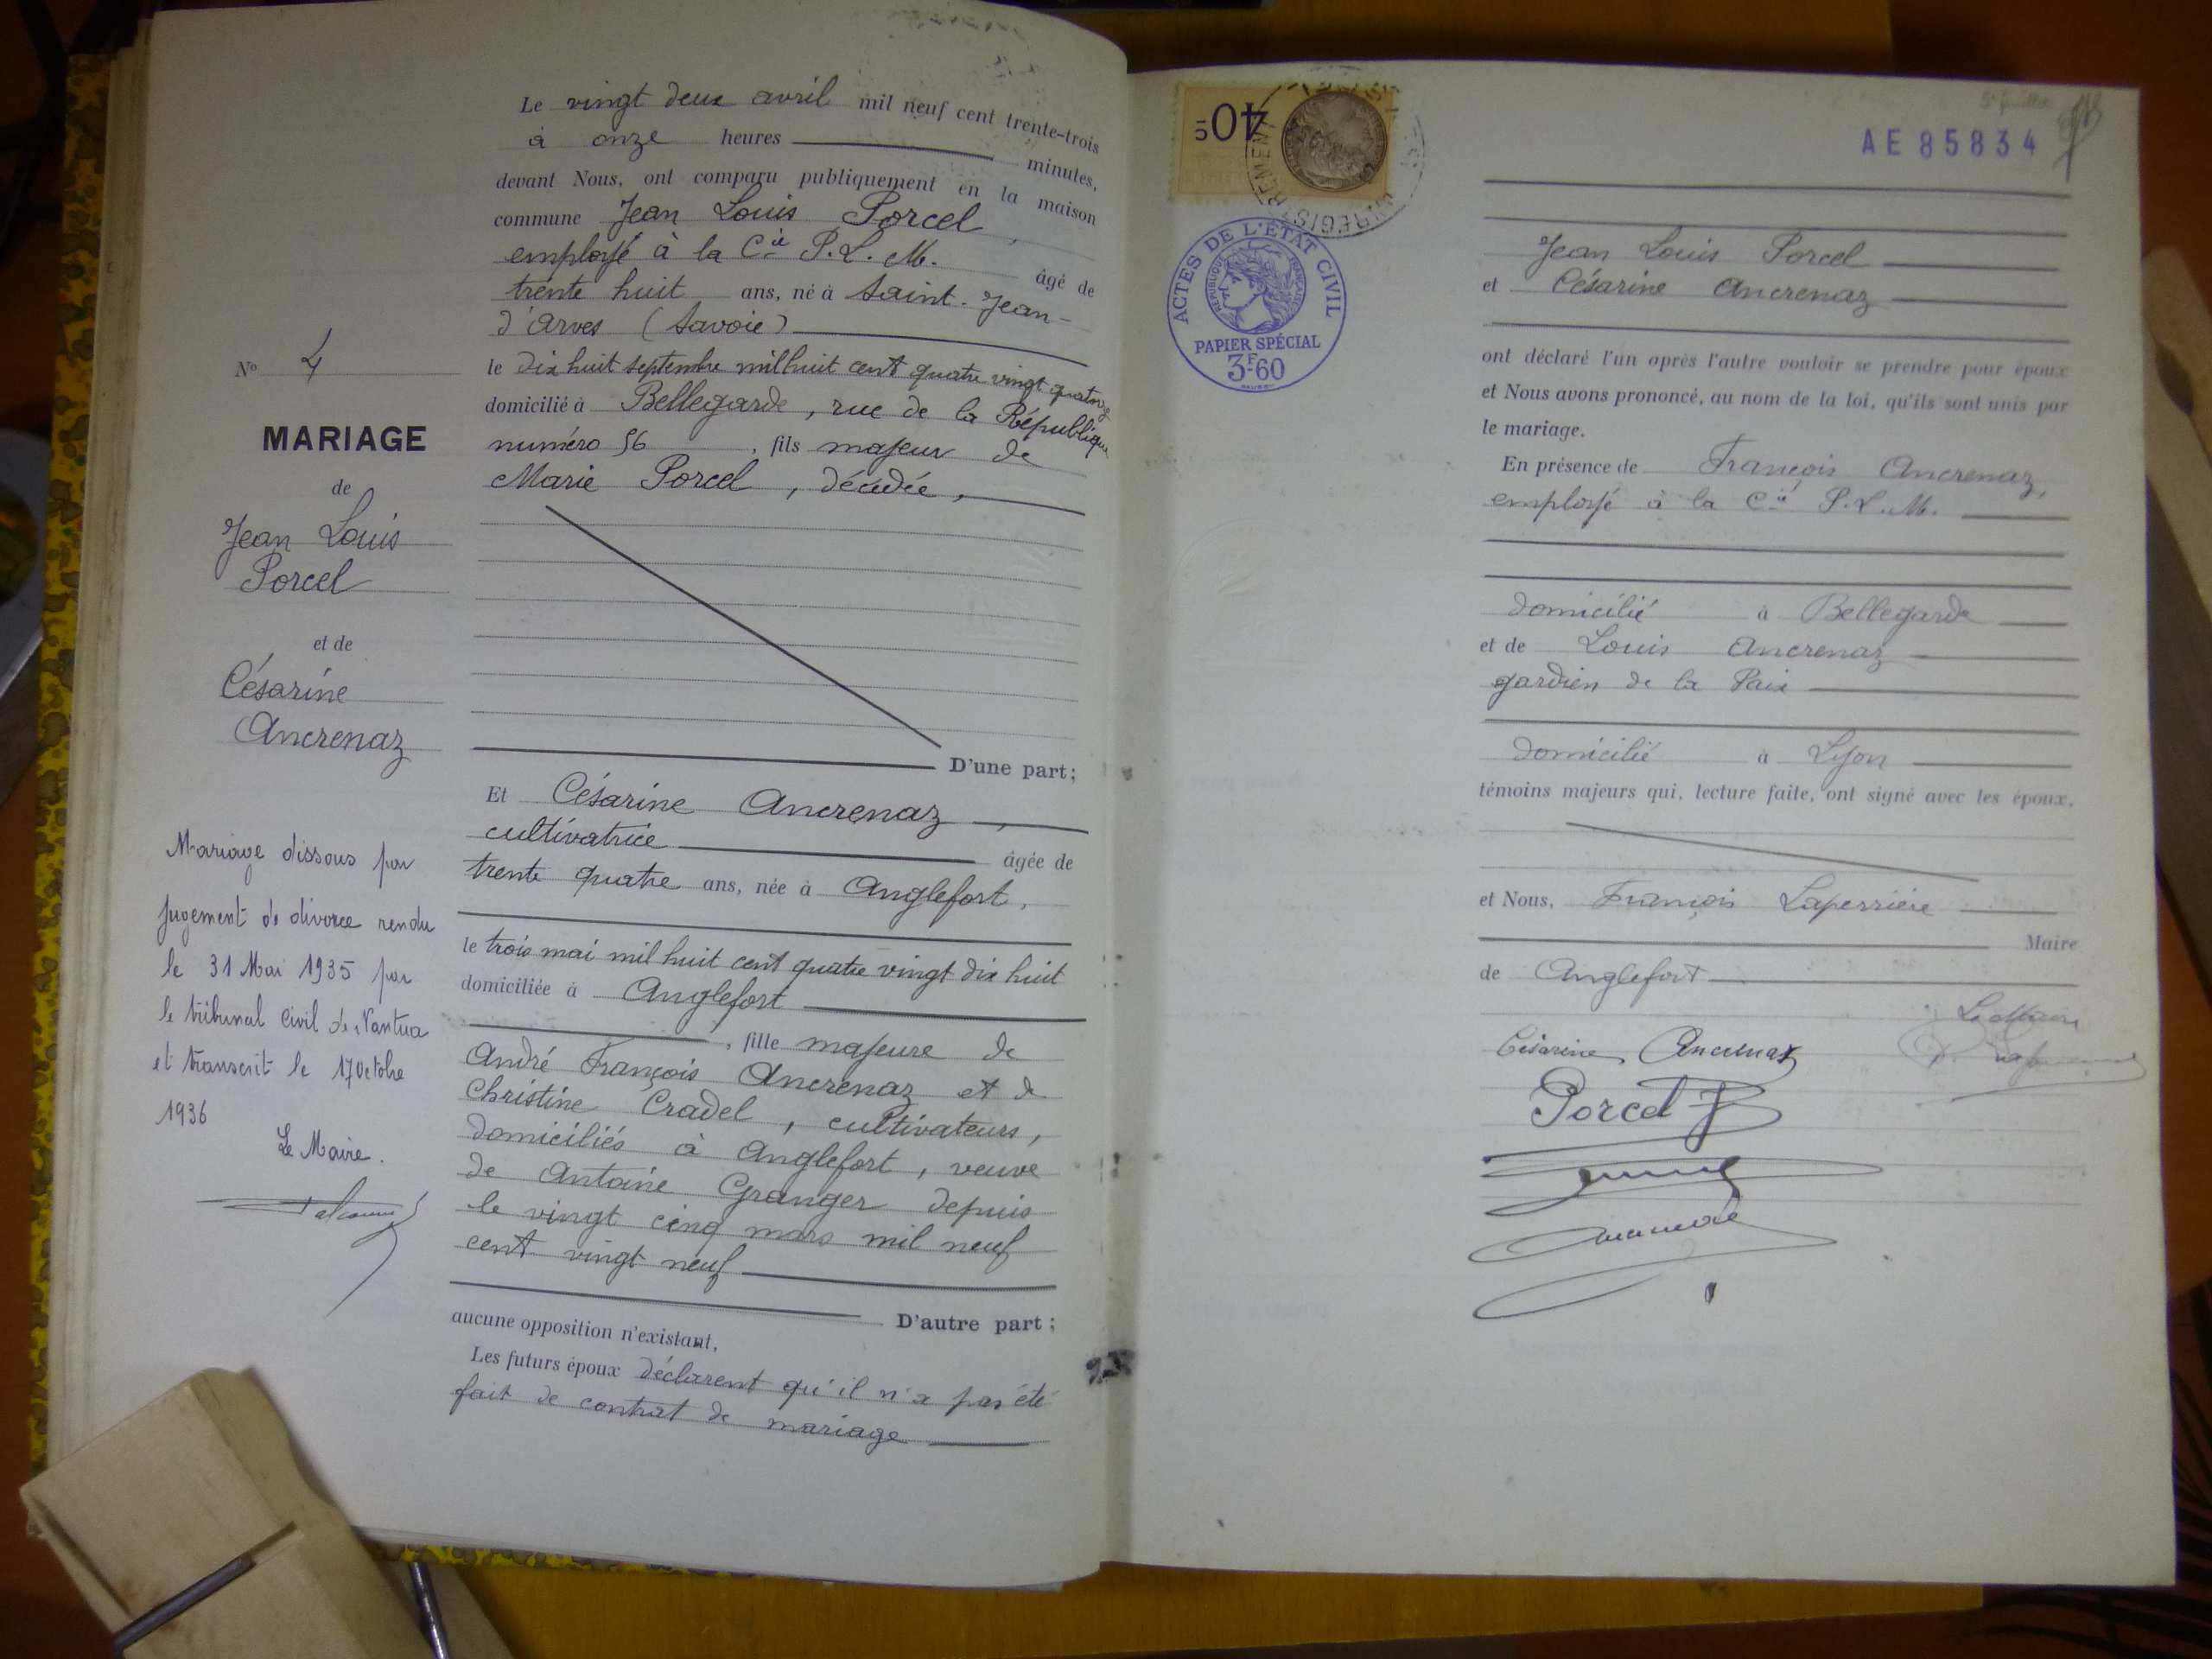 Le vingt deux avril mil neuf cent trente-trois
à onze heures minutes,
devant Nous, ont comparu publiquement en la maison
commune Jean Louis Porcel,
employé à la Cie P.L.M. âgé de
trente huit ans, né à Saint-Jean-
d'Arves (Savoie)
le dix huit septembre mil huit cent quatre vingt quatorze
domicilié à Bellegarde, rue de la République
numéro 56, fils majeur de
Marie Porcel, décédée,
D'une part;
Et Césarine Ancrenaz,
cultivatrice âgée de
trente quatre ans, née à Anglefort,
le trois mai mil huit cent quatre vingt dix huit
domiciliée à Anglefort
, fille majeure de
André François Ancrenaz et de
Christine Cradel, cultivateurs,
domiciliés à Anglefort, veuve
de Antoine Granger depuis
le vingt cinq mars mil neuf
cent vingt neuf
D'autre part;
aucune opposition n'existant,
Les futurs époux déclarent qu'il n'a pas été
fait de contrat de mariage
No 4
MARIAGE
de
Jean Louis
Porcel
et de
Césarine
Ancrenaz
Mariage dissous par
jugement de divorce rendu
le 31 Mai 1935 par
le tribunal Civil de Nantua
et transcrit le 17 Octobre
1936
Le Maire.
40c
ENREGISTREMENT
ACTES DE L'ÉTAT CIVIL
RÉPUBLIQUE FRANÇAISE
PAPIER SPÉCIAL
3F60
5e feuillet
AE 85834
Jean Louis Porcel
et Césarine Ancrenaz
ont déclaré l'un après l'autre vouloir se prendre pour époux
et Nous avons prononcé, au nom de la loi, qu'ils sont unis par
le mariage.
En présence de François Ancrenaz,
employé à la Cie P.L.M.
domicilié à Bellegarde
et de Louis Ancrenaz
gardien de la Paix
domicilié à Lyon
témoins majeurs qui, lecture faite, ont signé avec les époux,
et Nous, François Laperrière
Maire
de Anglefort
Le Maire
Césarine Ancrenaz
Porcel